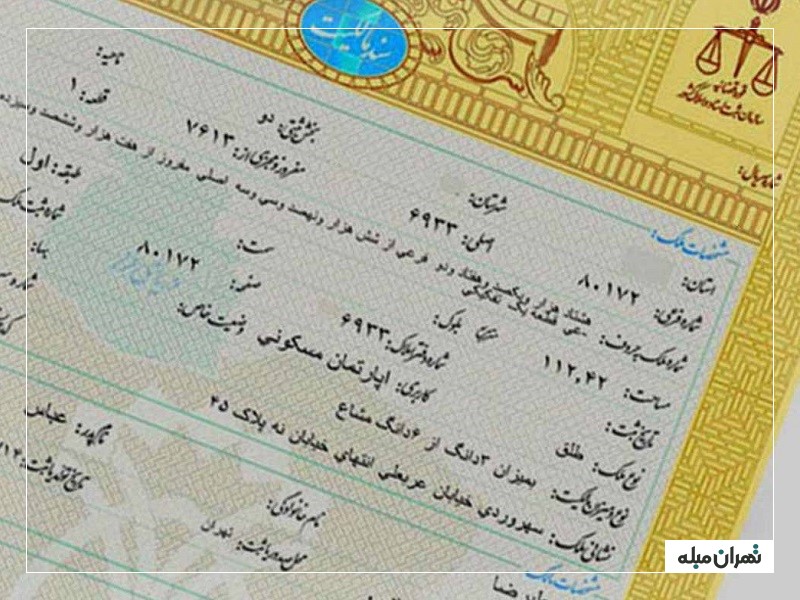 سند مالکیت
قوه قضائیه
سازمان ثبت اسناد و املاک کشور
شماره سریال:
مشخصات ملک:
استان: شهرستان: بخش ثبتی: دو ناحیه:
شماره فرعی: ۸۰۱۷۲ اصلی: ۶۹۳۳ مفروز و مجزی از: ۷۶۱۳ قطعه: ۱
شماره ملک بحروف: هشتاد هزار ویکصد وهفتاد ودو فرعی از شش هزار ونهصد وسی وسه اصلی مفروز از هفت هزار وششصد وسیزده
قطعه یک تفکیکی
مساحت: ۱۱۲,۴۲ بلوک: سمت: طبقه: اول
تاریخ ثبت: شماره دفتر املاک: ۶۹۳۳ صفحه: ۸۰۱۷۲ شماره ثبت ملک
نوع ملک: طلق کاربری: آپارتمان مسکونی وضعیت خاص: بها:
نوع و میزان مالکیت: بمیزان ۳دانگ از ۶دانگ مشاع
نشانی ملک: سهروردی خیابان عربعلی انتهای خیابان نه پلاک ۴۵
مشخصات مالک
نام خانوادگی: نام پدر: عباس
محل صدور یا ثبت: تهران تاریخ تولد یا ثبت:
تهران مبله